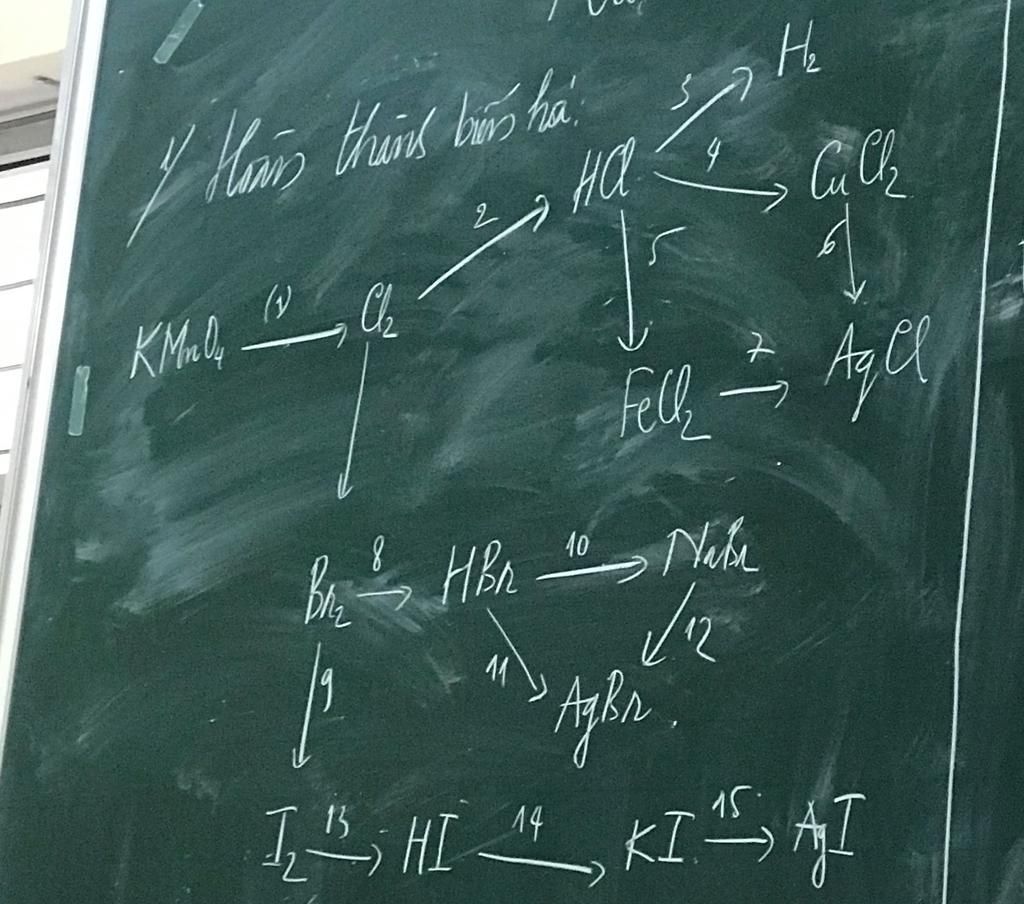 1/ Hoàn thành biến hoá:
3 H₂
HCl 4 CuCl₂
2 5 6
KMnO₄ (1) Cl₂
FeCl₂ 7 AgCl
Br₂ 8 HBr 10 NaBr
9 11 12
AgBr.
I₂ 13 HI 14 KI 15 AgI